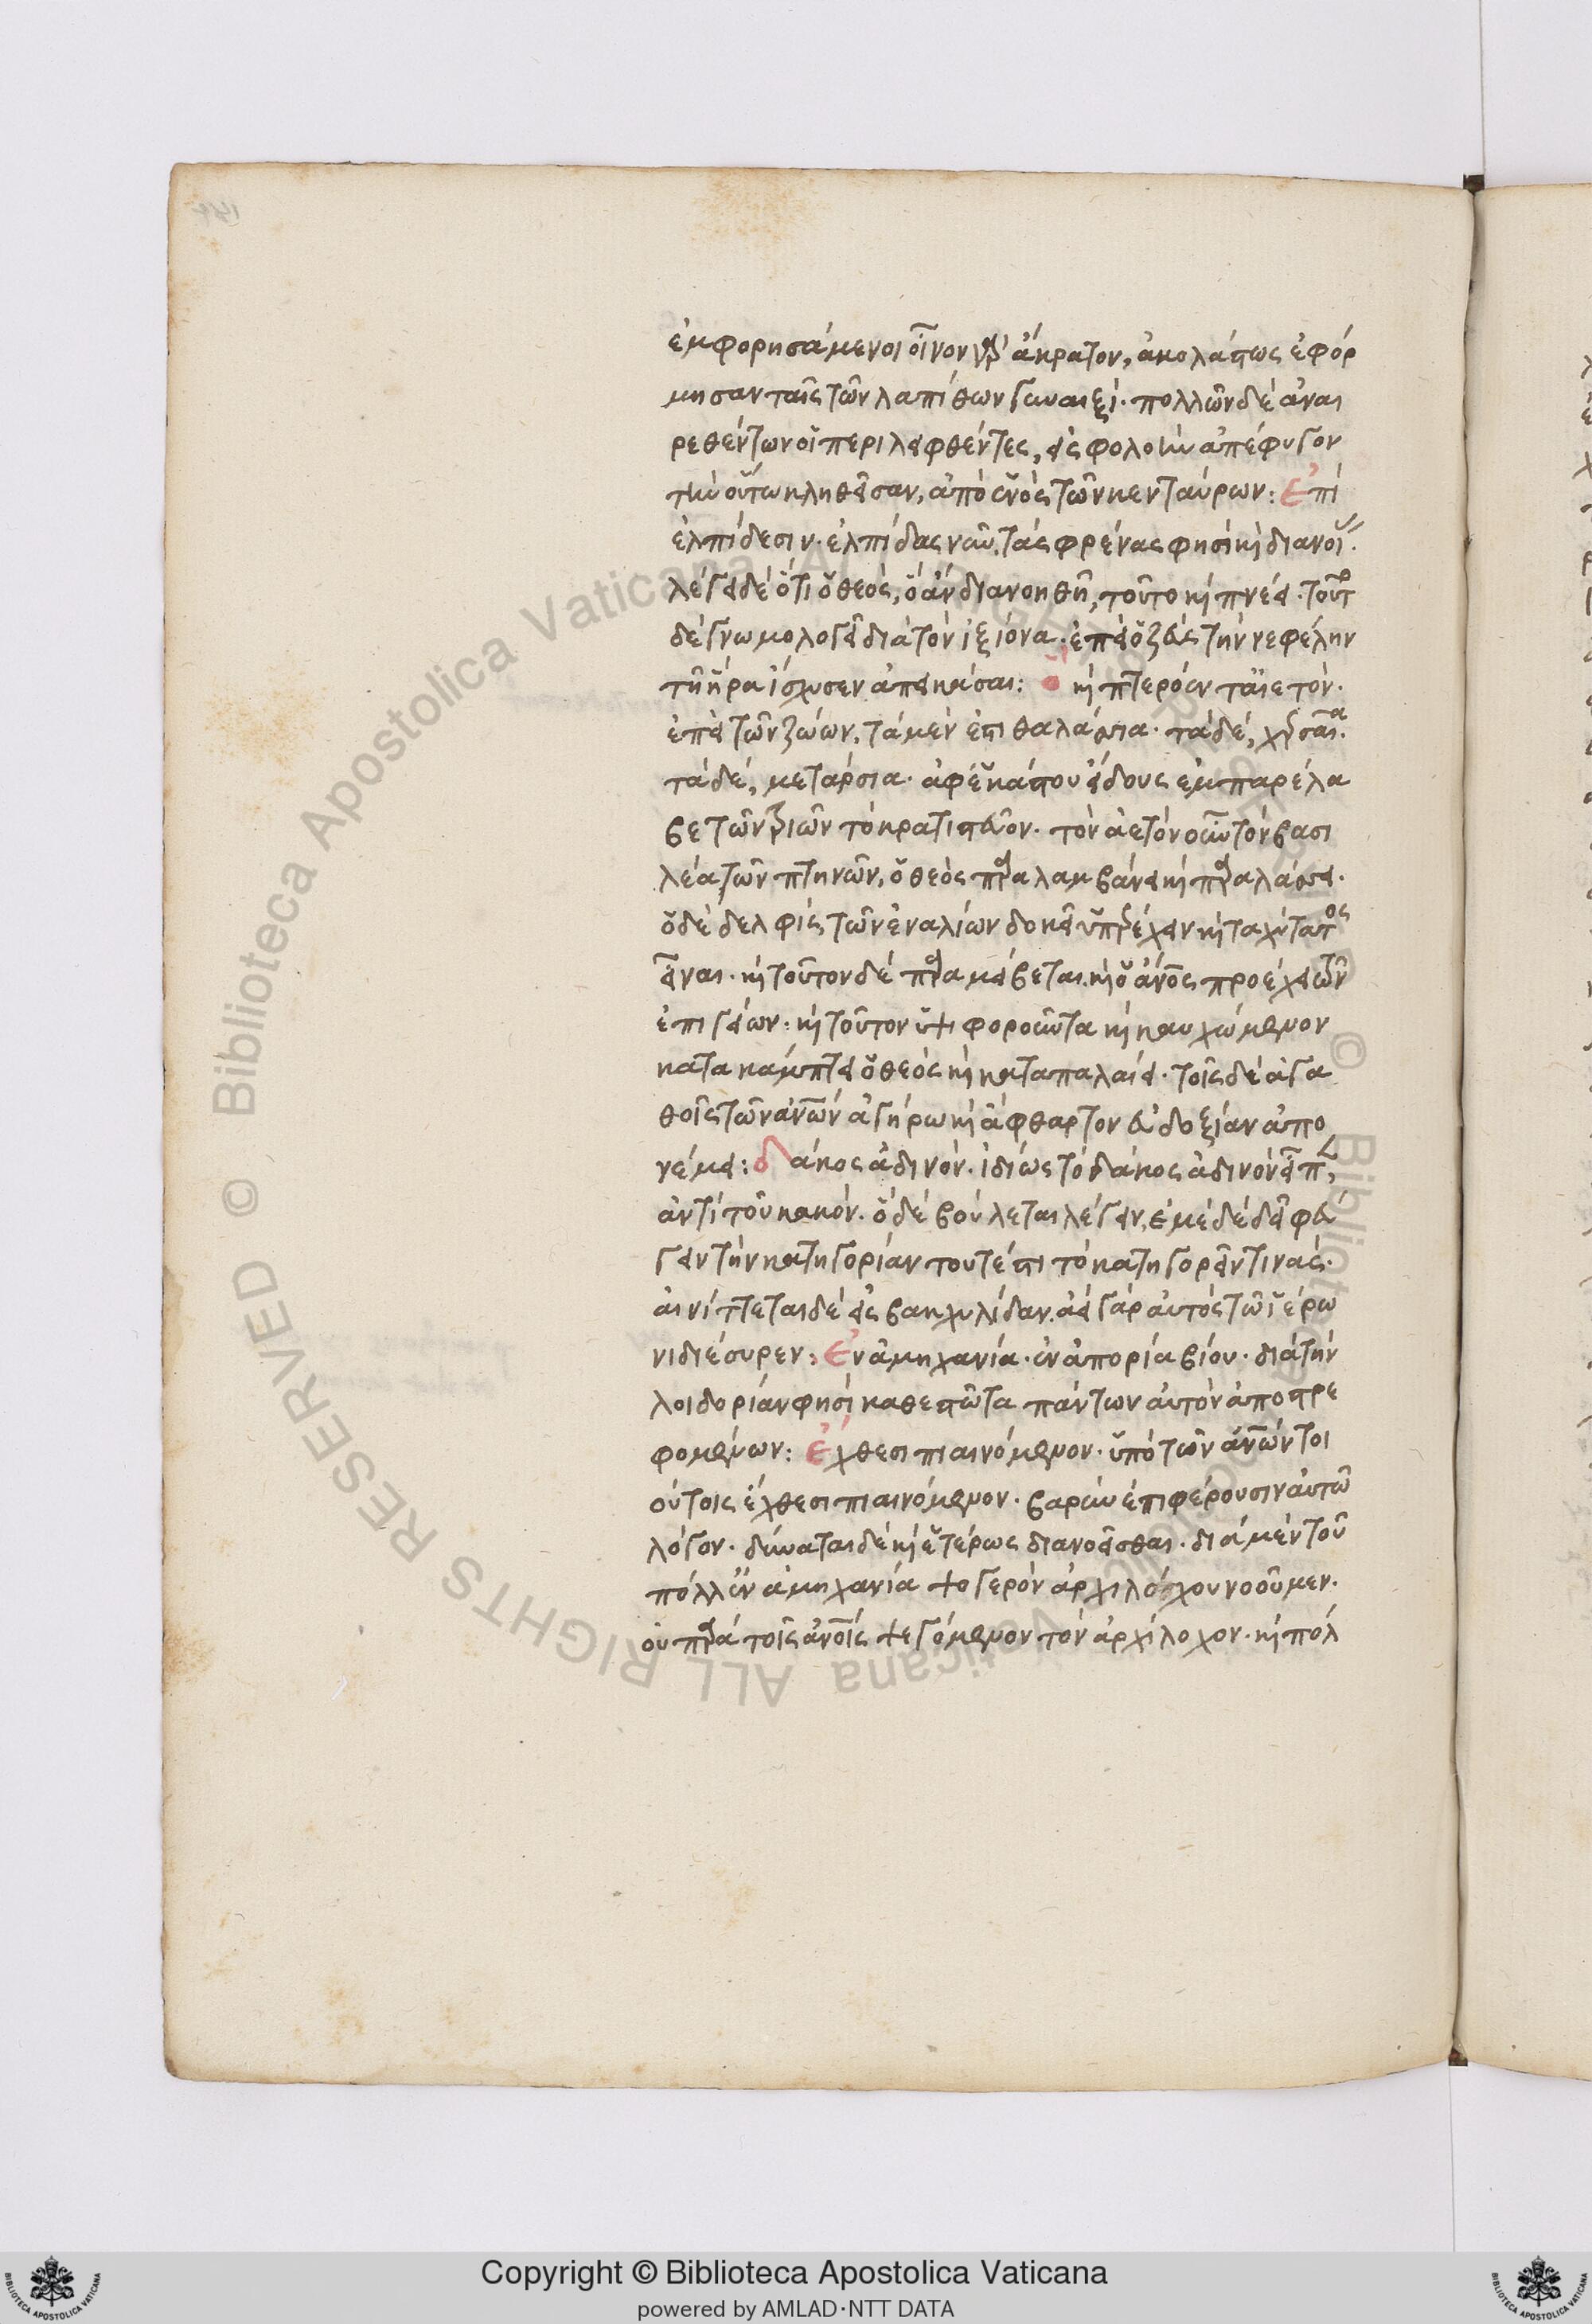 ἐμφορησάμενοι οἶνον γὰρ ἄκρατον, ἀκολάστως ἐφόρ
μησαν ταῖς τῶν λαπίθων γυναιξί· πολλῶν δὲ ἀναι
ρεθέντων οἱ περιλειφθέντες, εἰς φολοὴν ἀπέφυγον
τὴν οὕτω κληθεῖσαν, ἀπὸ ἑνὸς τῶν κενταύρων: Ἐπὶ
ἐλπίδεσιν· ἐλπίδας νῦν, τὰς φρένας φησὶ κὶ διανοί
λέγει δὲ ὅτι ὁ θεός, ὃ ἂν διανοηθῇ, τοῦτο κὶ πνέει· τοῦτο
δὲ γνωμολογεῖ διὰ τὸν ἰξίονα· ἐπεὶ ὁ ζεὺς τὴν νεφέλην
τῇ ἥρα ἴσχυσεν ἀπεικάσαι: ὃ κὶ πτερόεντ᾽ ἀϊετόν·
ἐπεὶ τῶν ζώων, τὰ μὲν ἐστι θαλάσσια· τὰ δέ, χερσαῖα·
τὰ δέ, μετάρσια· ἀφ᾽ ἑκάστου εἴδους ἐμπαρέλα
βε τῶν τριῶν τὸ κρατιστεῦον· τὸν ἀετὸν οὖν τὸν βασι
λέα τῶν πτηνῶν, ὁ θεὸς παραλαμβάνει κὶ παραλάσσει·
ὁ δὲ δελφίς, τῶν ἐναλίων δοκεῖ ὑπερέχειν κὶ ταχύτατος
εἶναι· κὶ τοῦτον δὲ παραμείβεται. κὶ ὁ ἄνος προέχει τῶν
ἐπιγείων· κὶ τοῦτον ὑψιφορούντα κὶ καυχώμενον
κατακάμπτει ὁ θεὸς κὶ καταπαλαίει· τοῖς δὲ ἀγα
θοῖς τῶν ἀνων ἀγήρω κὶ ἄφθαρτον εὐδοξίαν ἀπο
νέμει: δάκος ἀδινόν· ἰδίως τὸ δάκος ἀδινὸν εἶπεν,
ἀντὶ τοῦ κακόν· ὃ δὲ βούλεται λέγειν, ἐμὲ δὲ δεῖ φεύ
γειν τὴν κατηγορίαν τουτέστι τὸ κατηγορεῖν τινάς·
αἰνίττεται δὲ εἰς βακχυλίδαν. ἀεὶ γὰρ αὐτὸς τῷ ἱέρω
νι διέσυρεν: Ἐν ἀμηχανία· ἐν ἀπορία βίου· διὰ τὴν
λοιδορίαν φησὶ καθεστῶτα πάντων αὐτὸν ἀποστρε
φομένων: Ἔχθεσι πιαινόμενον· ὑπὸ τῶν ἀνων τοι
ούτοις ἔχθεσι πιαινόμενον· βαρὺν ἐπιφέρουσιν αὐτῷ
λόγον· δύναται δὲ κὶ ἑτέρως διανοεῖσθαι· διὰ μὲν τοῦ
πόλλ᾽ ἐν ἀμηχανία ψογερὸν ἀρχιλόχου νοοῦμεν·
οὐ παρὰ τοῖς ἀνοις ψεγόμενον τὸν ἀρχίλοχον· κὶ πόλ
Copyright © Biblioteca Apostolica Vaticana
powered by AMLAD·NTT DATA